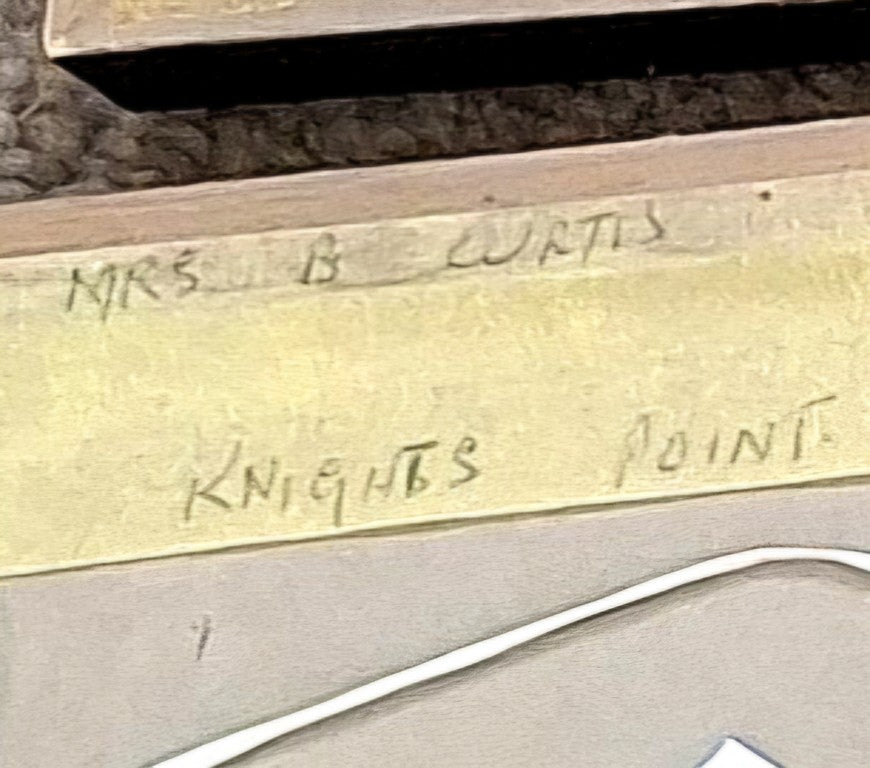 MRS B CURTIS
KNIGHTS POINT.